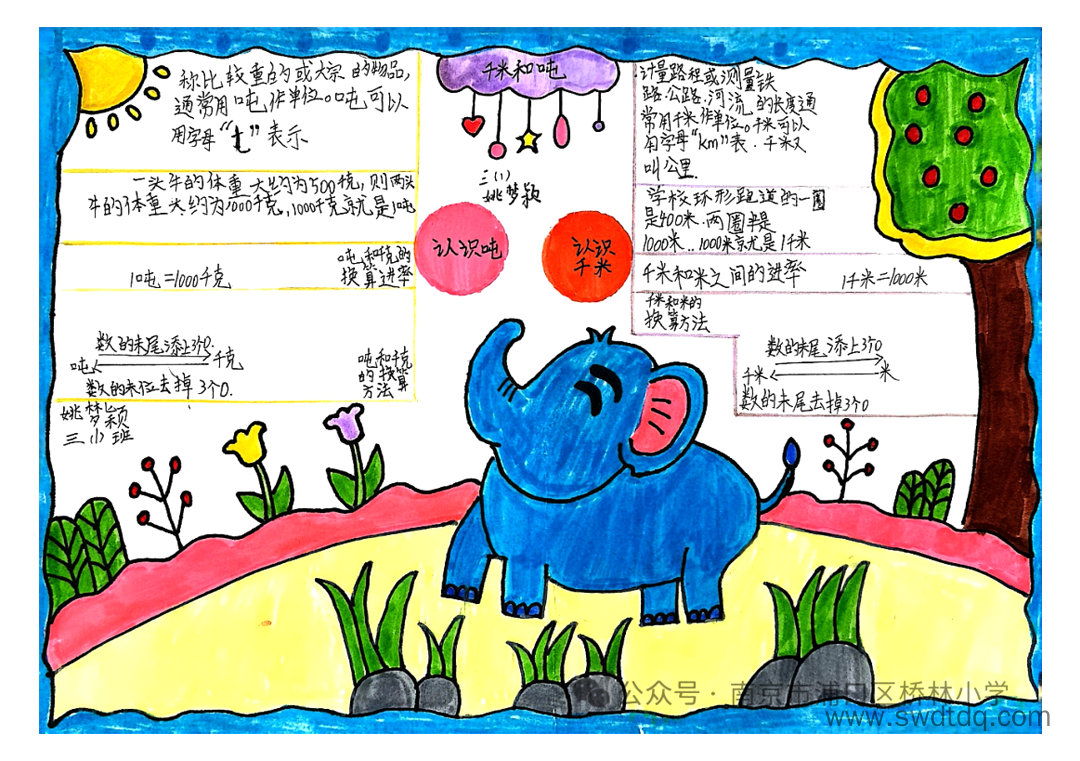 千米和吨
三(1)
姚梦颖
认识吨
认识
千米
称比较重的或大宗的物品,
通常用吨作单位。吨可以
用字母“t”表示
一头牛的体重大约为500千克,则两头
牛的体重大约为1000千克,1000千克就是1吨
1吨=1000千克
吨和千克的
换算进率
数的末尾添上3个0.
吨
千克
数的末位去掉3个0.
吨和千克
的换算
方法
姚梦颖
三(1)班
计量路程或测量铁
路.公路.河流.的长度通
常用千米作单位。千米可以
用字母“km”表.千米又
叫公里.
学校环形跑道的一圈
是400米.两圈半是
1000米..1000米就是1千米
千米和米之间的进率
1千米=1000米
千米和米的
换算方法
数的末尾添上3个0
千米
米
数的末尾去掉3个0
公众号·南京市浦口区桥林小学
www.swdtdq.com